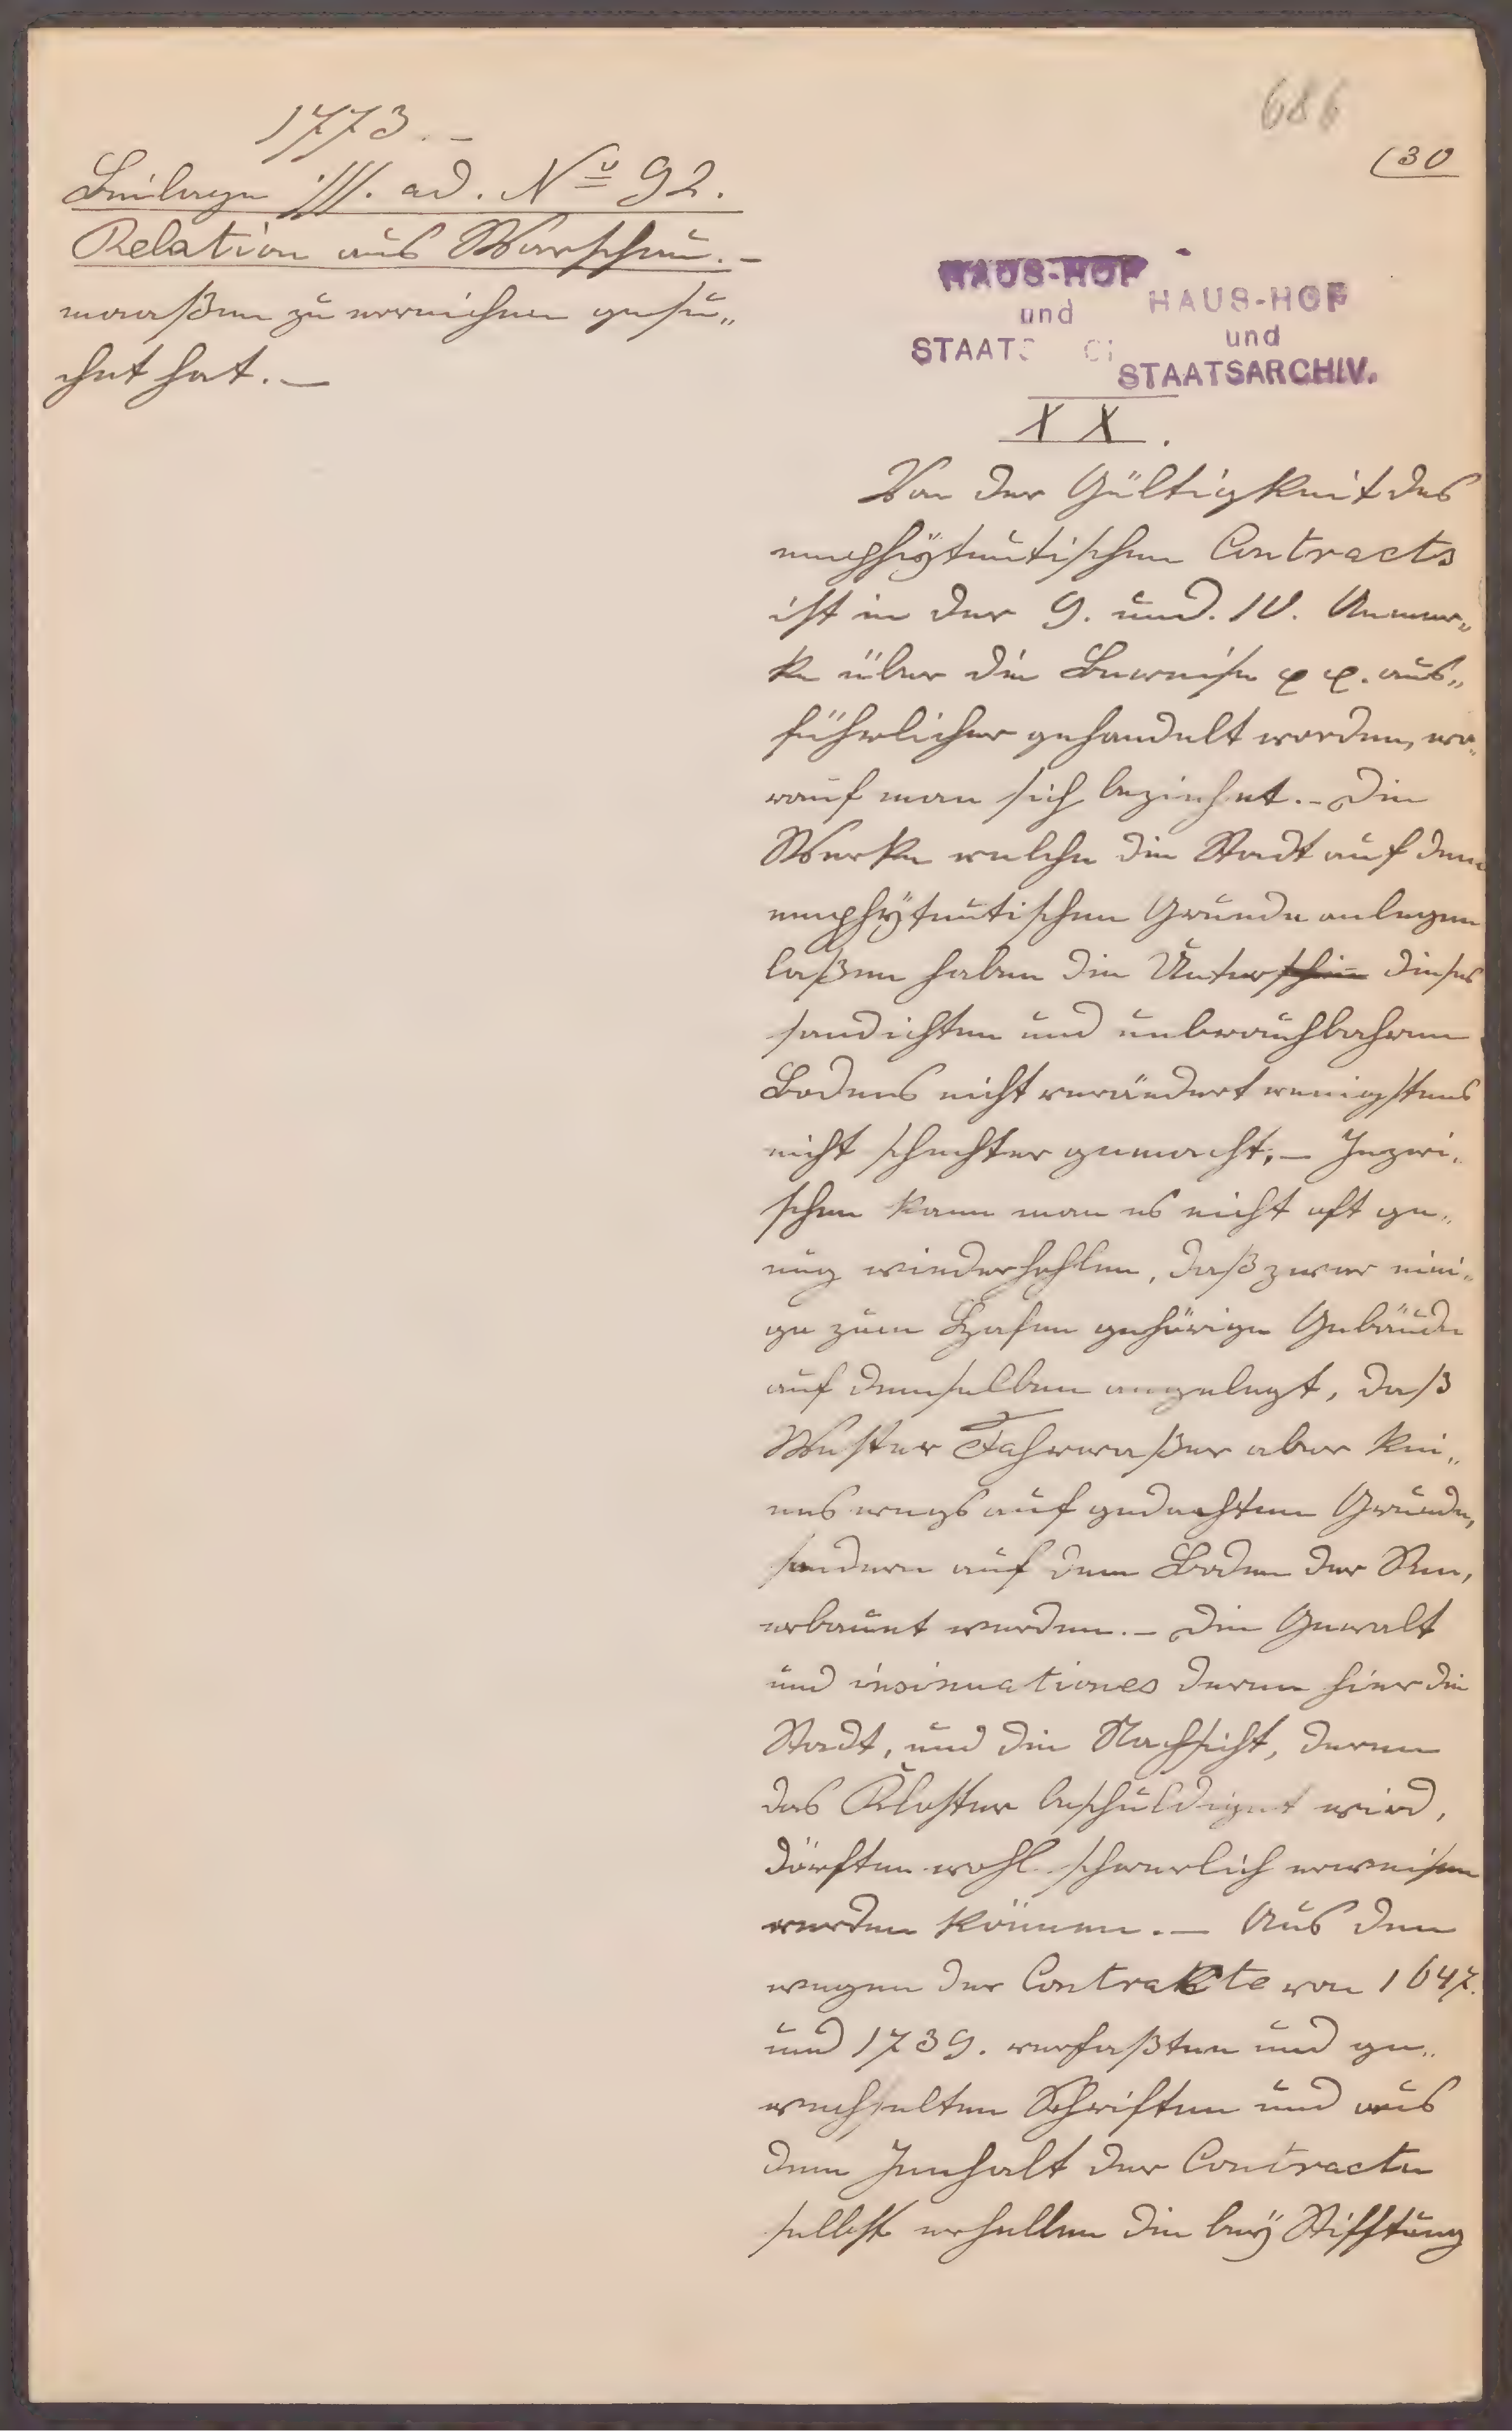 1773.-
Beilage III. ad. No 92.
Relation aus Warschau.-
maaßen zu erreichen gesu„
chet hat.-
686
(30
HAUS-HOF
und
STAATS
HAUS-HOF
und
STAATSARCHIV.
XX.
Von der Gültigkeit des
emphÿteutischen Contracts
ist in der 9. und. 10. Anmer„
ke über die Beweise
aus„
führlicher gehandelt worden, wo„
rauf man sich beziehet.- Die
Werke welche die Stadt auf dem
emphÿteutischen Grunde anlegen
laßen haben die Natur dieses
sandichten und unbrauchbahren
Bodens nicht verändert wenigstens
nicht schechter gemacht.- Inzwi„
schen kann man es nicht oft ge„
nug wiederhohlen, daß zwar eini„
ge zum Hafen gehörige Gebäude
auf demselben angelegt, daß
Wester Fahrwaßer aber kei„
nes wegs auf gedachtem Grunde,
sondern auf dem Boden der See,
erbauet werden.- Die Gewalt
und insinuationes deren hier die
Stadt, und die Nachsicht, deren
das Kloster beschuldiget wird,
dörften wohl schwerlich erweisen
werden können.- Aus den
wegen der Contrakte von 1647.
und 1739. verfaßten und ge„
wechselten Schriften und aus
dem Innhalt der Contracte
selbst erhellen die beÿ Stifftung